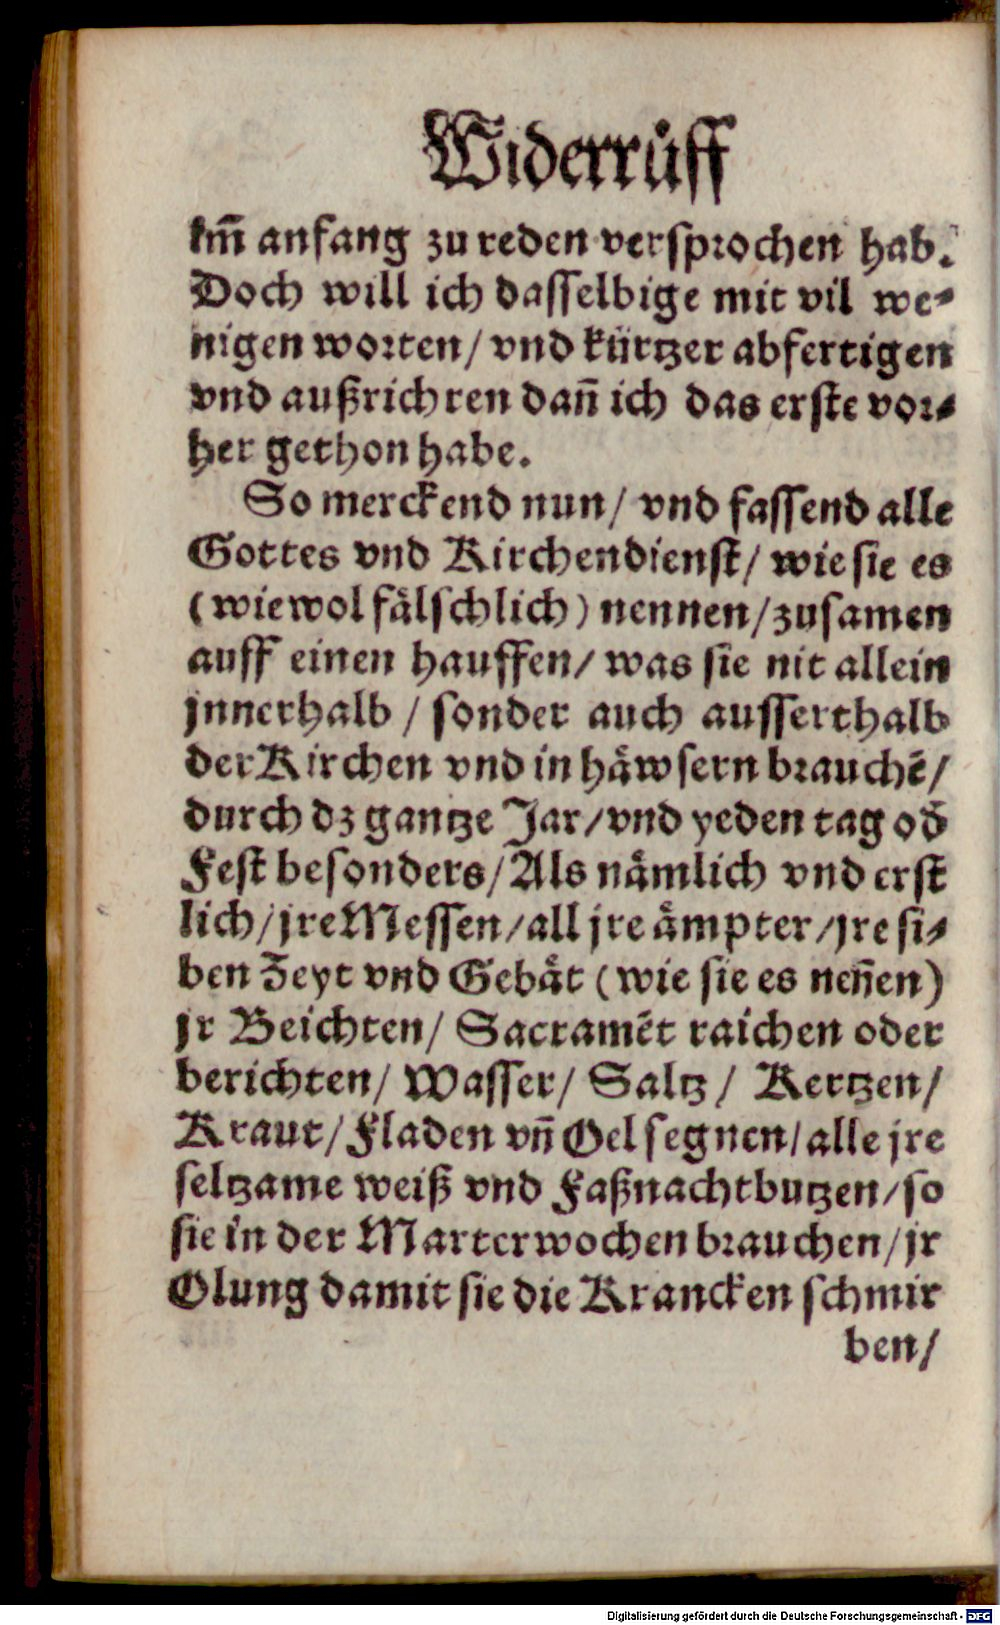 Widerrůff
im̄ anfang zu reden versprochen hab.
Doch will ich dasselbige mit vil we⸗
nigen worten/ vnd kürtzer abfertigen
vnd außrichten dañ ich das erste vor⸗
her gethon habe.
So merckend nun/ vnd fassend alle
Gottes vnd Kirchendienst/ wie sie es
(wiewol fälschlich) nennen/ zusamen
auff einen hauffen/ was sie nit allein
jnnerhalb / sonder auch ausserthalb
der Kirchen vnd in häwsern brauchē/
durch dz gantze Jar/ vnd yeden tag od̄
Fest besonders/ Als nämlich vnd erst
lich/ jre Messen/ all jre ämpter/ jre si⸗
ben Zeyt vnd Gebät (wie sie es neñen)
jr Beichten/ Sacramēt raichen oder
berichten/ Wasser/ Saltz / Kertzen/
Kraut/ Fladen vñ Oel segnen/ alle jre
seltzame weiß vnd Faßnachtbutzen/ so
sie in der Marterwochen brauchen/ jr
Olung damit sie die Krancken schmir
ben/
Digitalisierung gefördert durch die Deutsche Forschungsgemeinschaft - DFG